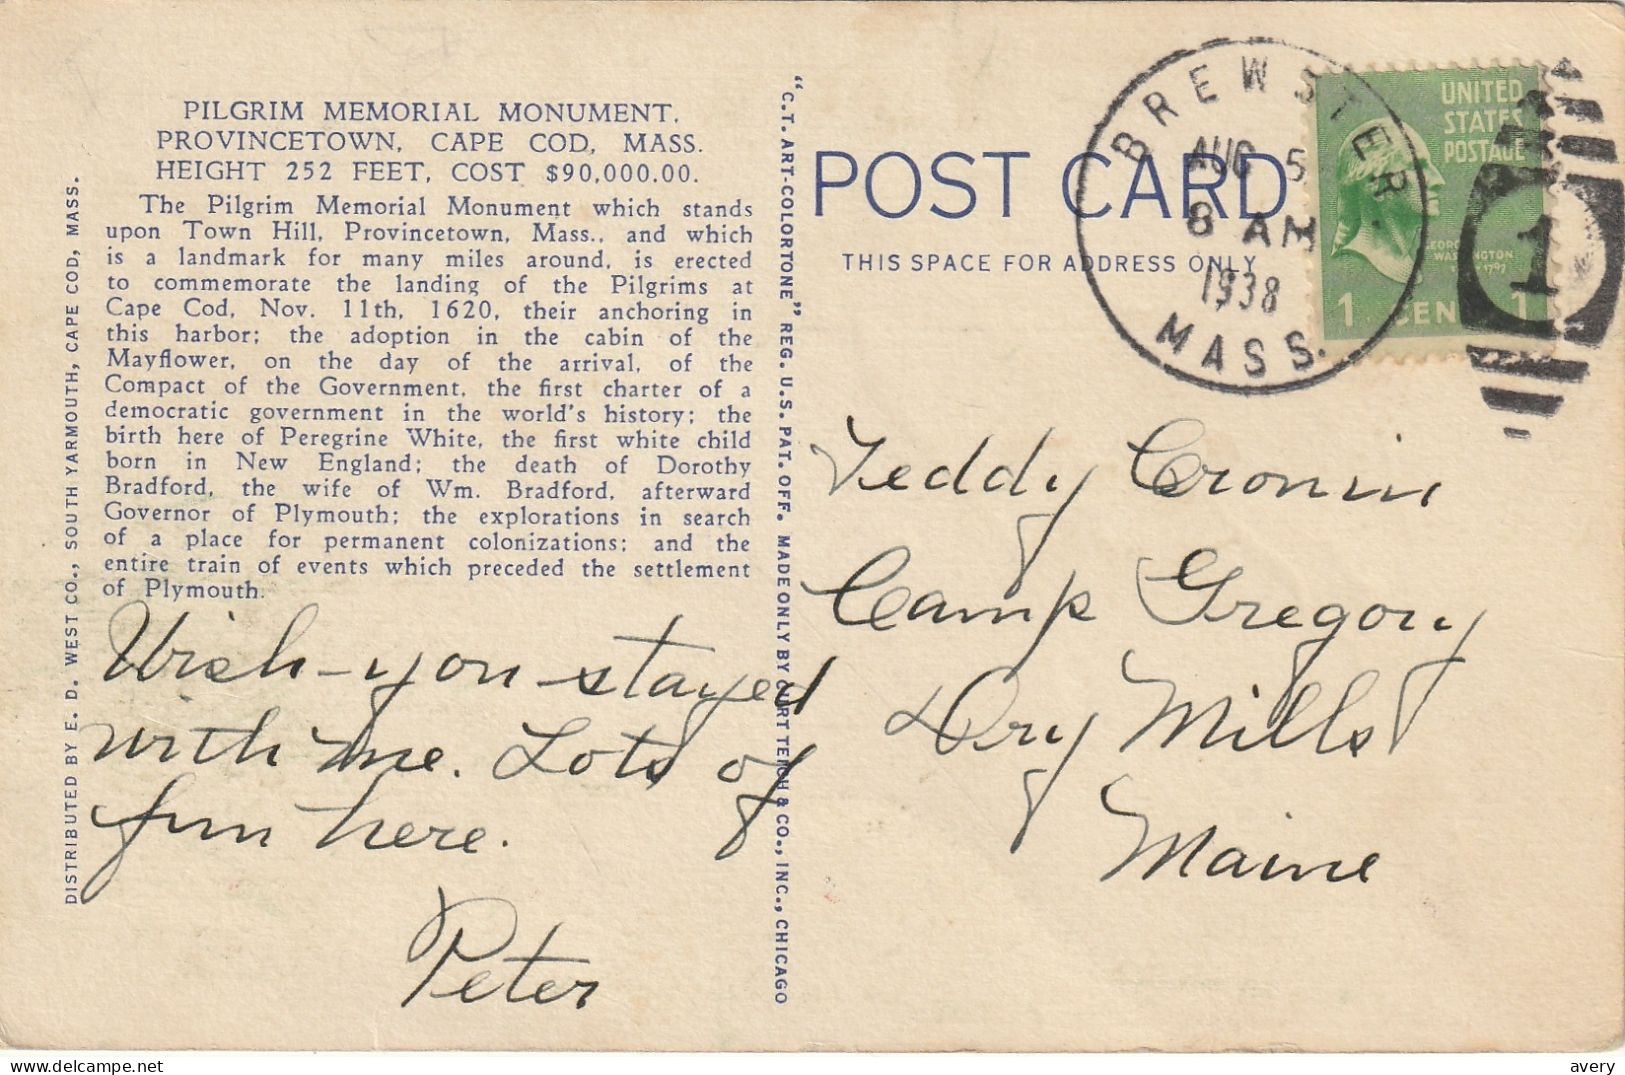 PILGRIM MEMORIAL MONUMENT,
PROVINCETOWN, CAPE COD, MASS.
HEIGHT 252 FEET, COST $90,000.00.
The Pilgrim Memorial Monument which stands
upon Town Hill, Provincetown, Mass., and which
is a landmark for many miles around, is erected
to commemorate the landing of the Pilgrims at
Cape Cod, Nov. 11th, 1620, their anchoring in
this harbor; the adoption in the cabin of the
Mayflower, on the day of the arrival, of the
Compact of the Government, the first charter of a
democratic government in the world's history; the
birth here of Peregrine White, the first white child
born in New England; the death of Dorothy
Bradford, the wife of Wm. Bradford, afterward
Governor of Plymouth; the explorations in search
of a place for permanent colonizations; and the
entire train of events which preceded the settlement
of Plymouth.
DISTRIBUTED BY E. D. WEST CO., SOUTH YARMOUTH, CAPE COD, MASS.
Wish you stayed
with me. Lots of
fun here.
Peter
"C.T. ART-COLORTONE" REG. U.S. PAT. OFF. MADE ONLY BY CURT TEICH & CO., INC., CHICAGO
POST CARD
THIS SPACE FOR ADDRESS ONLY
BREWSTER.
AUG 5
8 AM
1938
MASS.
UNITED
STATES
POSTAGE
GEORGE
WASHINGTON
1797
1 CENT 1
1
Teddy Cronin
Camp Gregory
Dry Mills
Maine
delcampe.net
avery